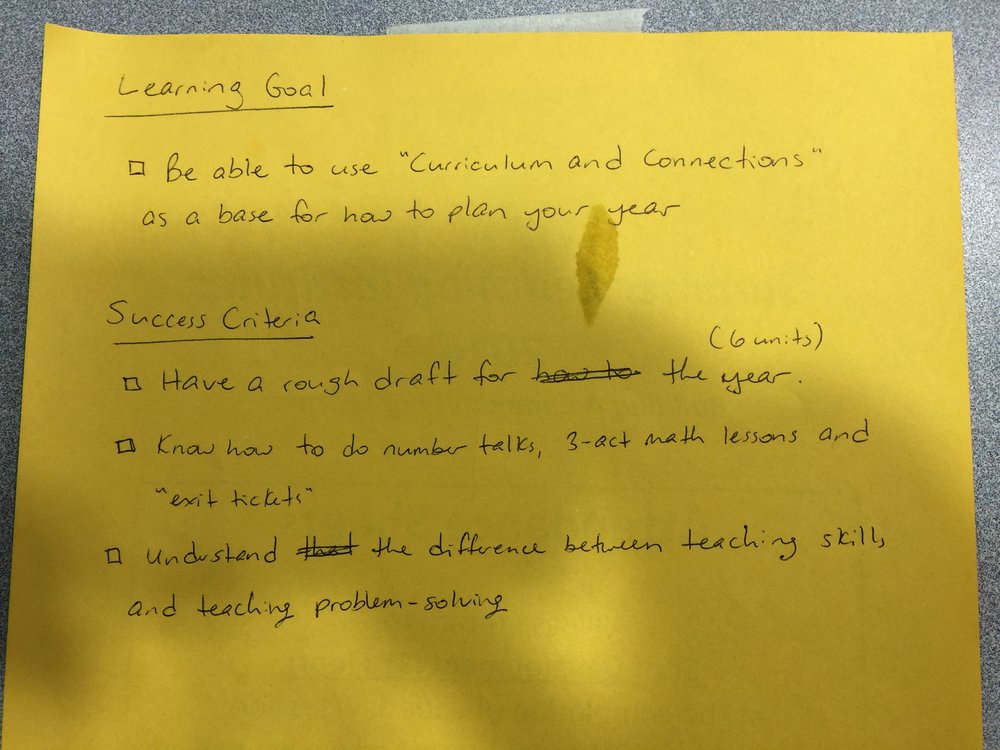 Learning Goal
□ Be able to use "Curriculum and Connections"
as a base for how to plan your year
Success Criteria
(6 units)
□ Have a rough draft for ~~how to~~ the year.
□ Know how to do number talks, 3-act math lessons and
"exit tickets"
□ Understand ~~that~~ the difference between teaching skills
and teaching problem-solving